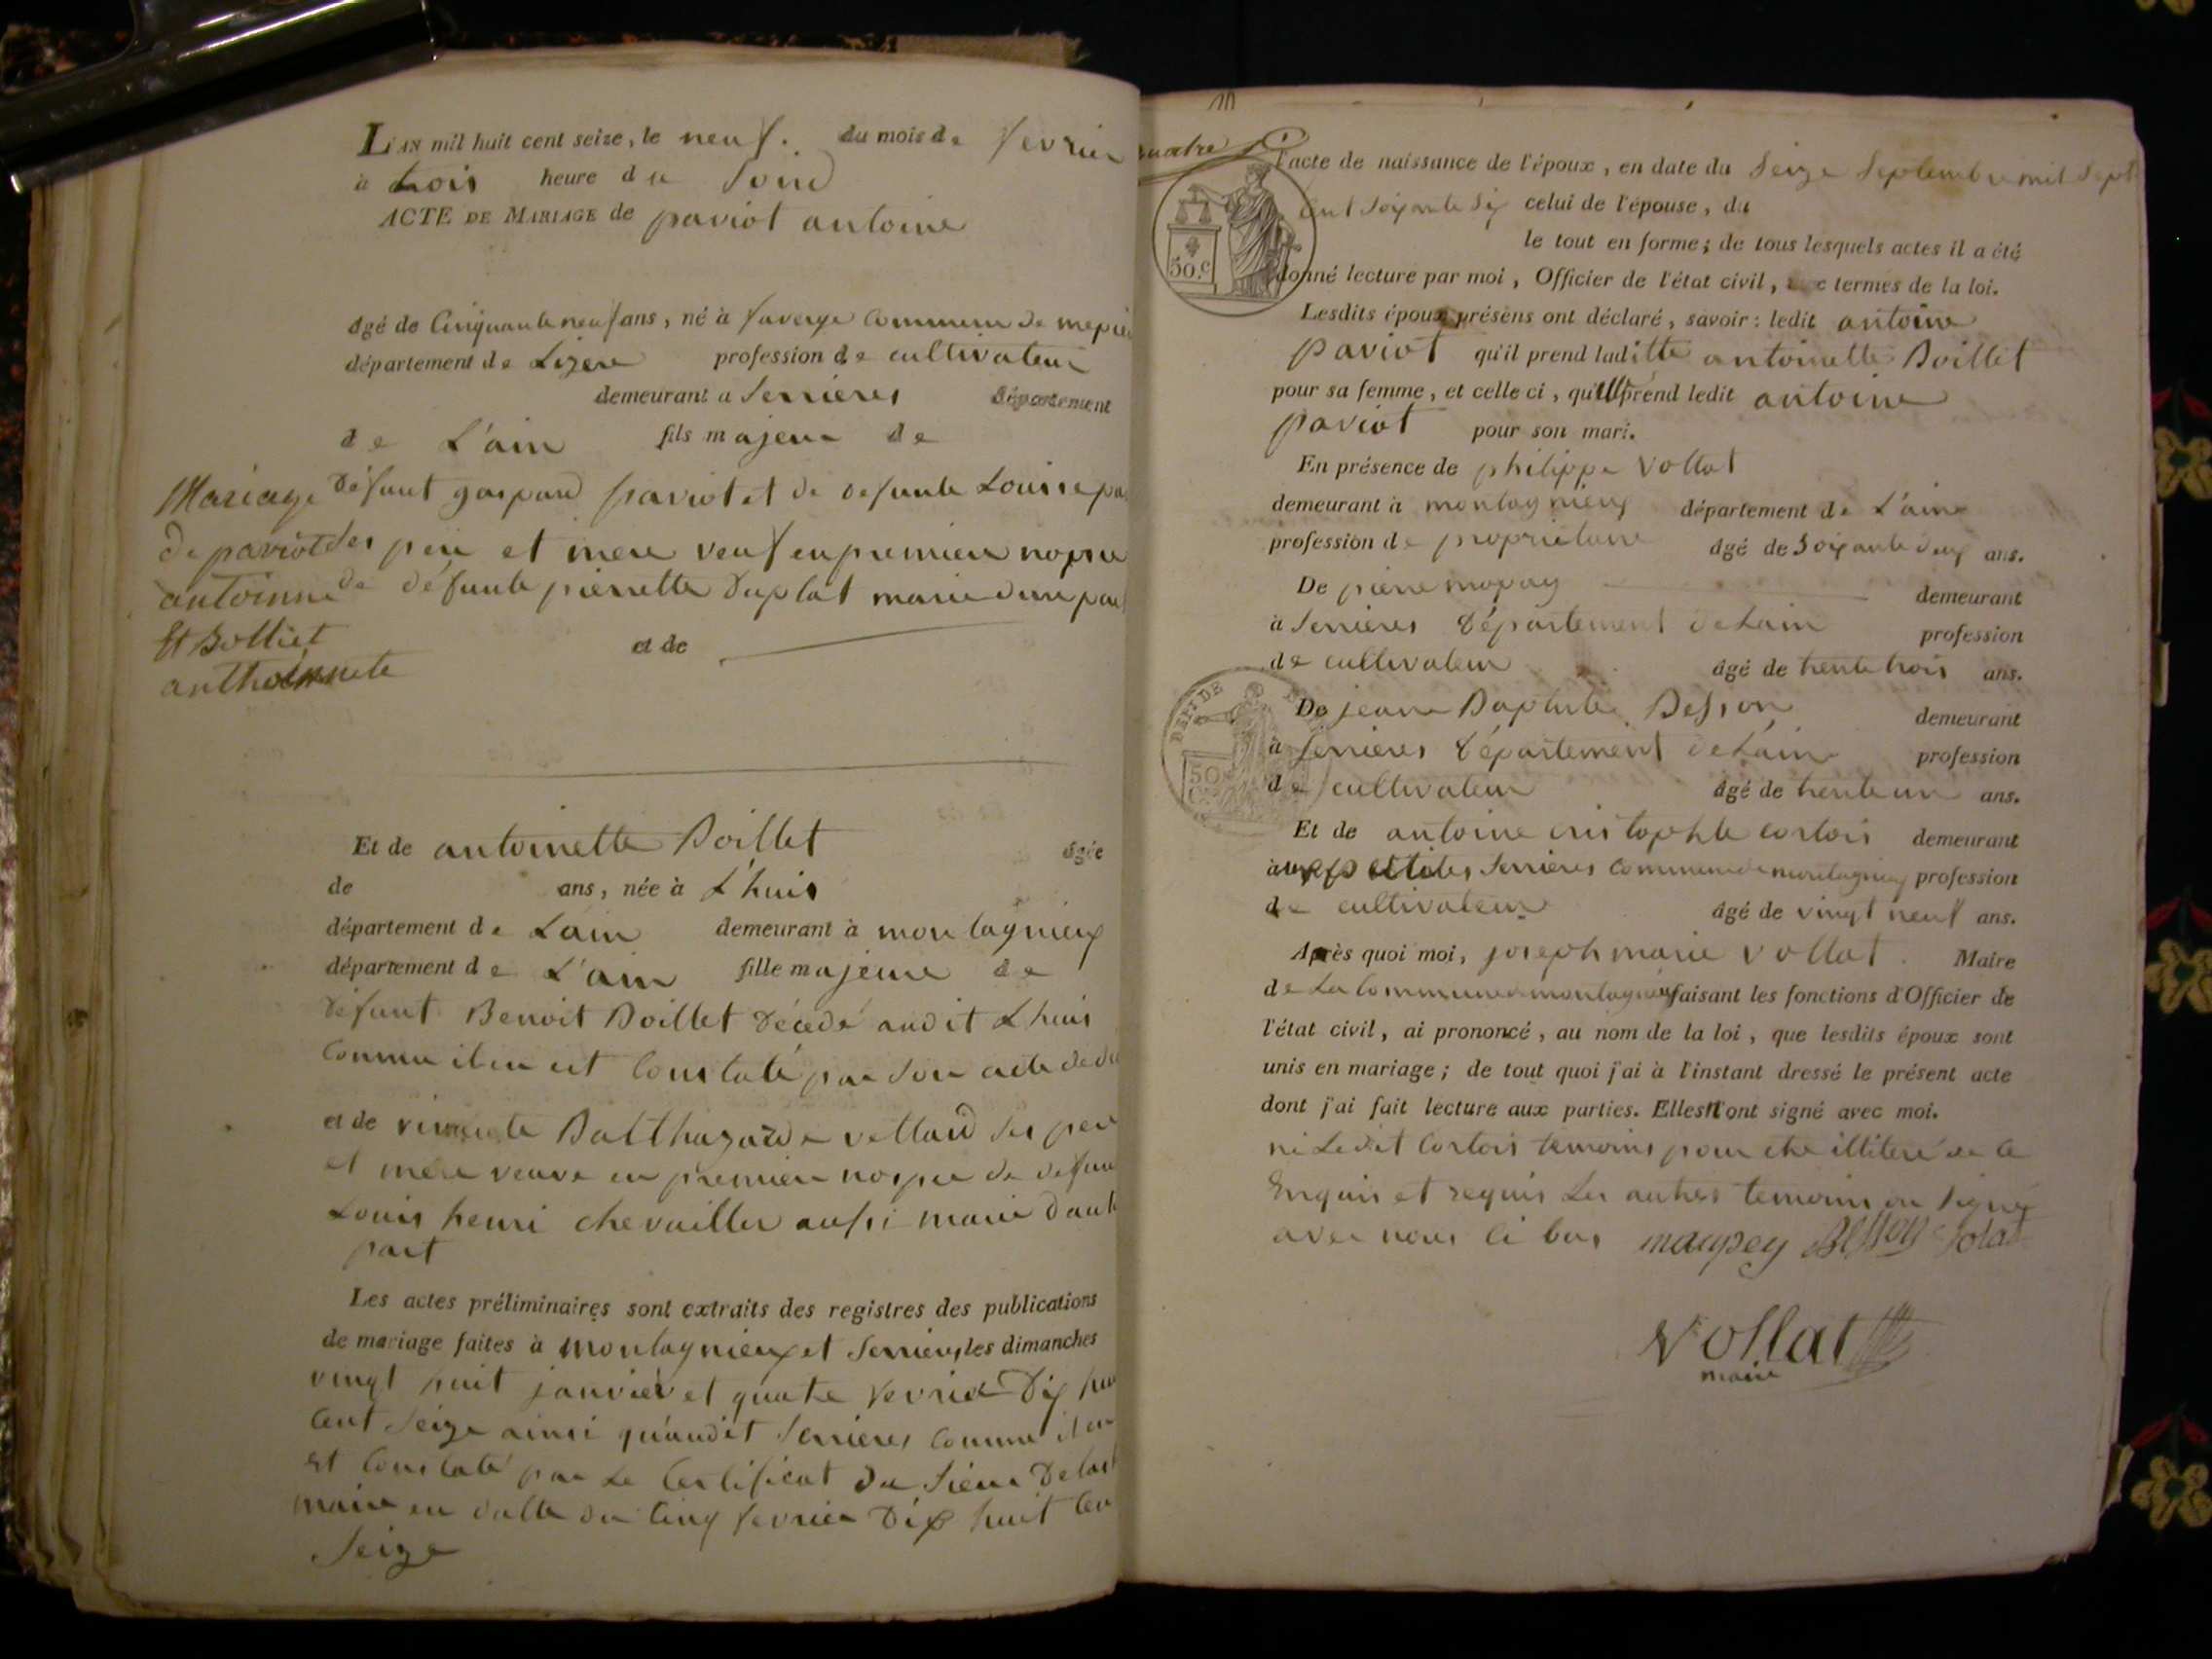 L'AN mil huit cent seize, le neuf. du mois de fevrier
à trois heure du Soir
ACTE DE MARIAGE de paviot antoine
âgé de Cinquante neuf ans, né à faverge commune de
département de Lizere profession de cultivateur
demeurant a Serrieres département
de L'ain fils majeur de
défunt gaspard paviot et de defunte Louise
ses pere et mere veuf en premiere nopse
de défunte pierrette Duplat marié dune part
Mariage
de paviot
antoinne
Et Bolliet
anthoinnete
et de
Et de antoinette Boillet âgée
de ans, née à L'huis
département de Lain demeurant à montagnieux
département de L'ain fille majeure de
défunt Benoit Boillet décédé audit Lhuis
comme il en est Constaté par son acte de
et de Balthazarde vettard ses pere
et mere veuve en premiere nospse de
Louis henri chevailler aussi marié
part
Les actes préliminaires sont extraits des registres des publications
de mariage faites à montagnieux et Serrieres les dimanches
vingt huit janvier et quatre fevrier Dix
Cent Seize ainsi qu'audit Serrieres comme il en
est Constaté par Le Certificat du Sieur
maire en datte du Cinq fevrier Dix huit
Seize
quatre
l'acte de naissance de l'époux, en date du Seize Septembre mil Sept
Cent Soixante Six celui de l'épouse, du
le tout en forme; de tous lesquels actes il a été
donné lecture par moi, Officier de l'état civil, termes de la loi.
50.c
Lesdits époux présens ont déclaré, savoir: ledit antoine
paviot qu'il prend laditte antoinette Boillet
pour sa femme, et celle ci, qu'elle prend ledit antoine
paviot pour son mari.
En présence de philippe Vollat
demeurant à montagnieux département de L'ain
profession de proprietaire âgé de Soixante deux ans.
De pierre demeurant
à Serrieres département de Lain profession
de cultivateur âgé de trente trois ans.
De jean Baptiste Besson demeurant
à Serrieres département de Lain profession
50
de cultivateur âgé de trente un ans.
Et de antoine cristophle cortois demeurant
aux petites Serrieres commune de montagnieux profession
de cultivateur âgé de vingt neuf ans.
Après quoi moi, joseph marie Vollat. Maire
de La Commune de montagnieux faisant les fonctions d'Officier de
l'état civil, ai prononcé, au nom de la loi, que lesdits époux sont
unis en mariage; de tout quoi j'ai à l'instant dressé le présent acte
dont j'ai fait lecture aux parties. Elles n'ont signé avec moi.
ni Ledit Cortois temoins pour etre illiteré de ce
Enquis et requis Les autres temoins on Signé
avec nous ci bas maupey Besson Volat
Vollat
maire